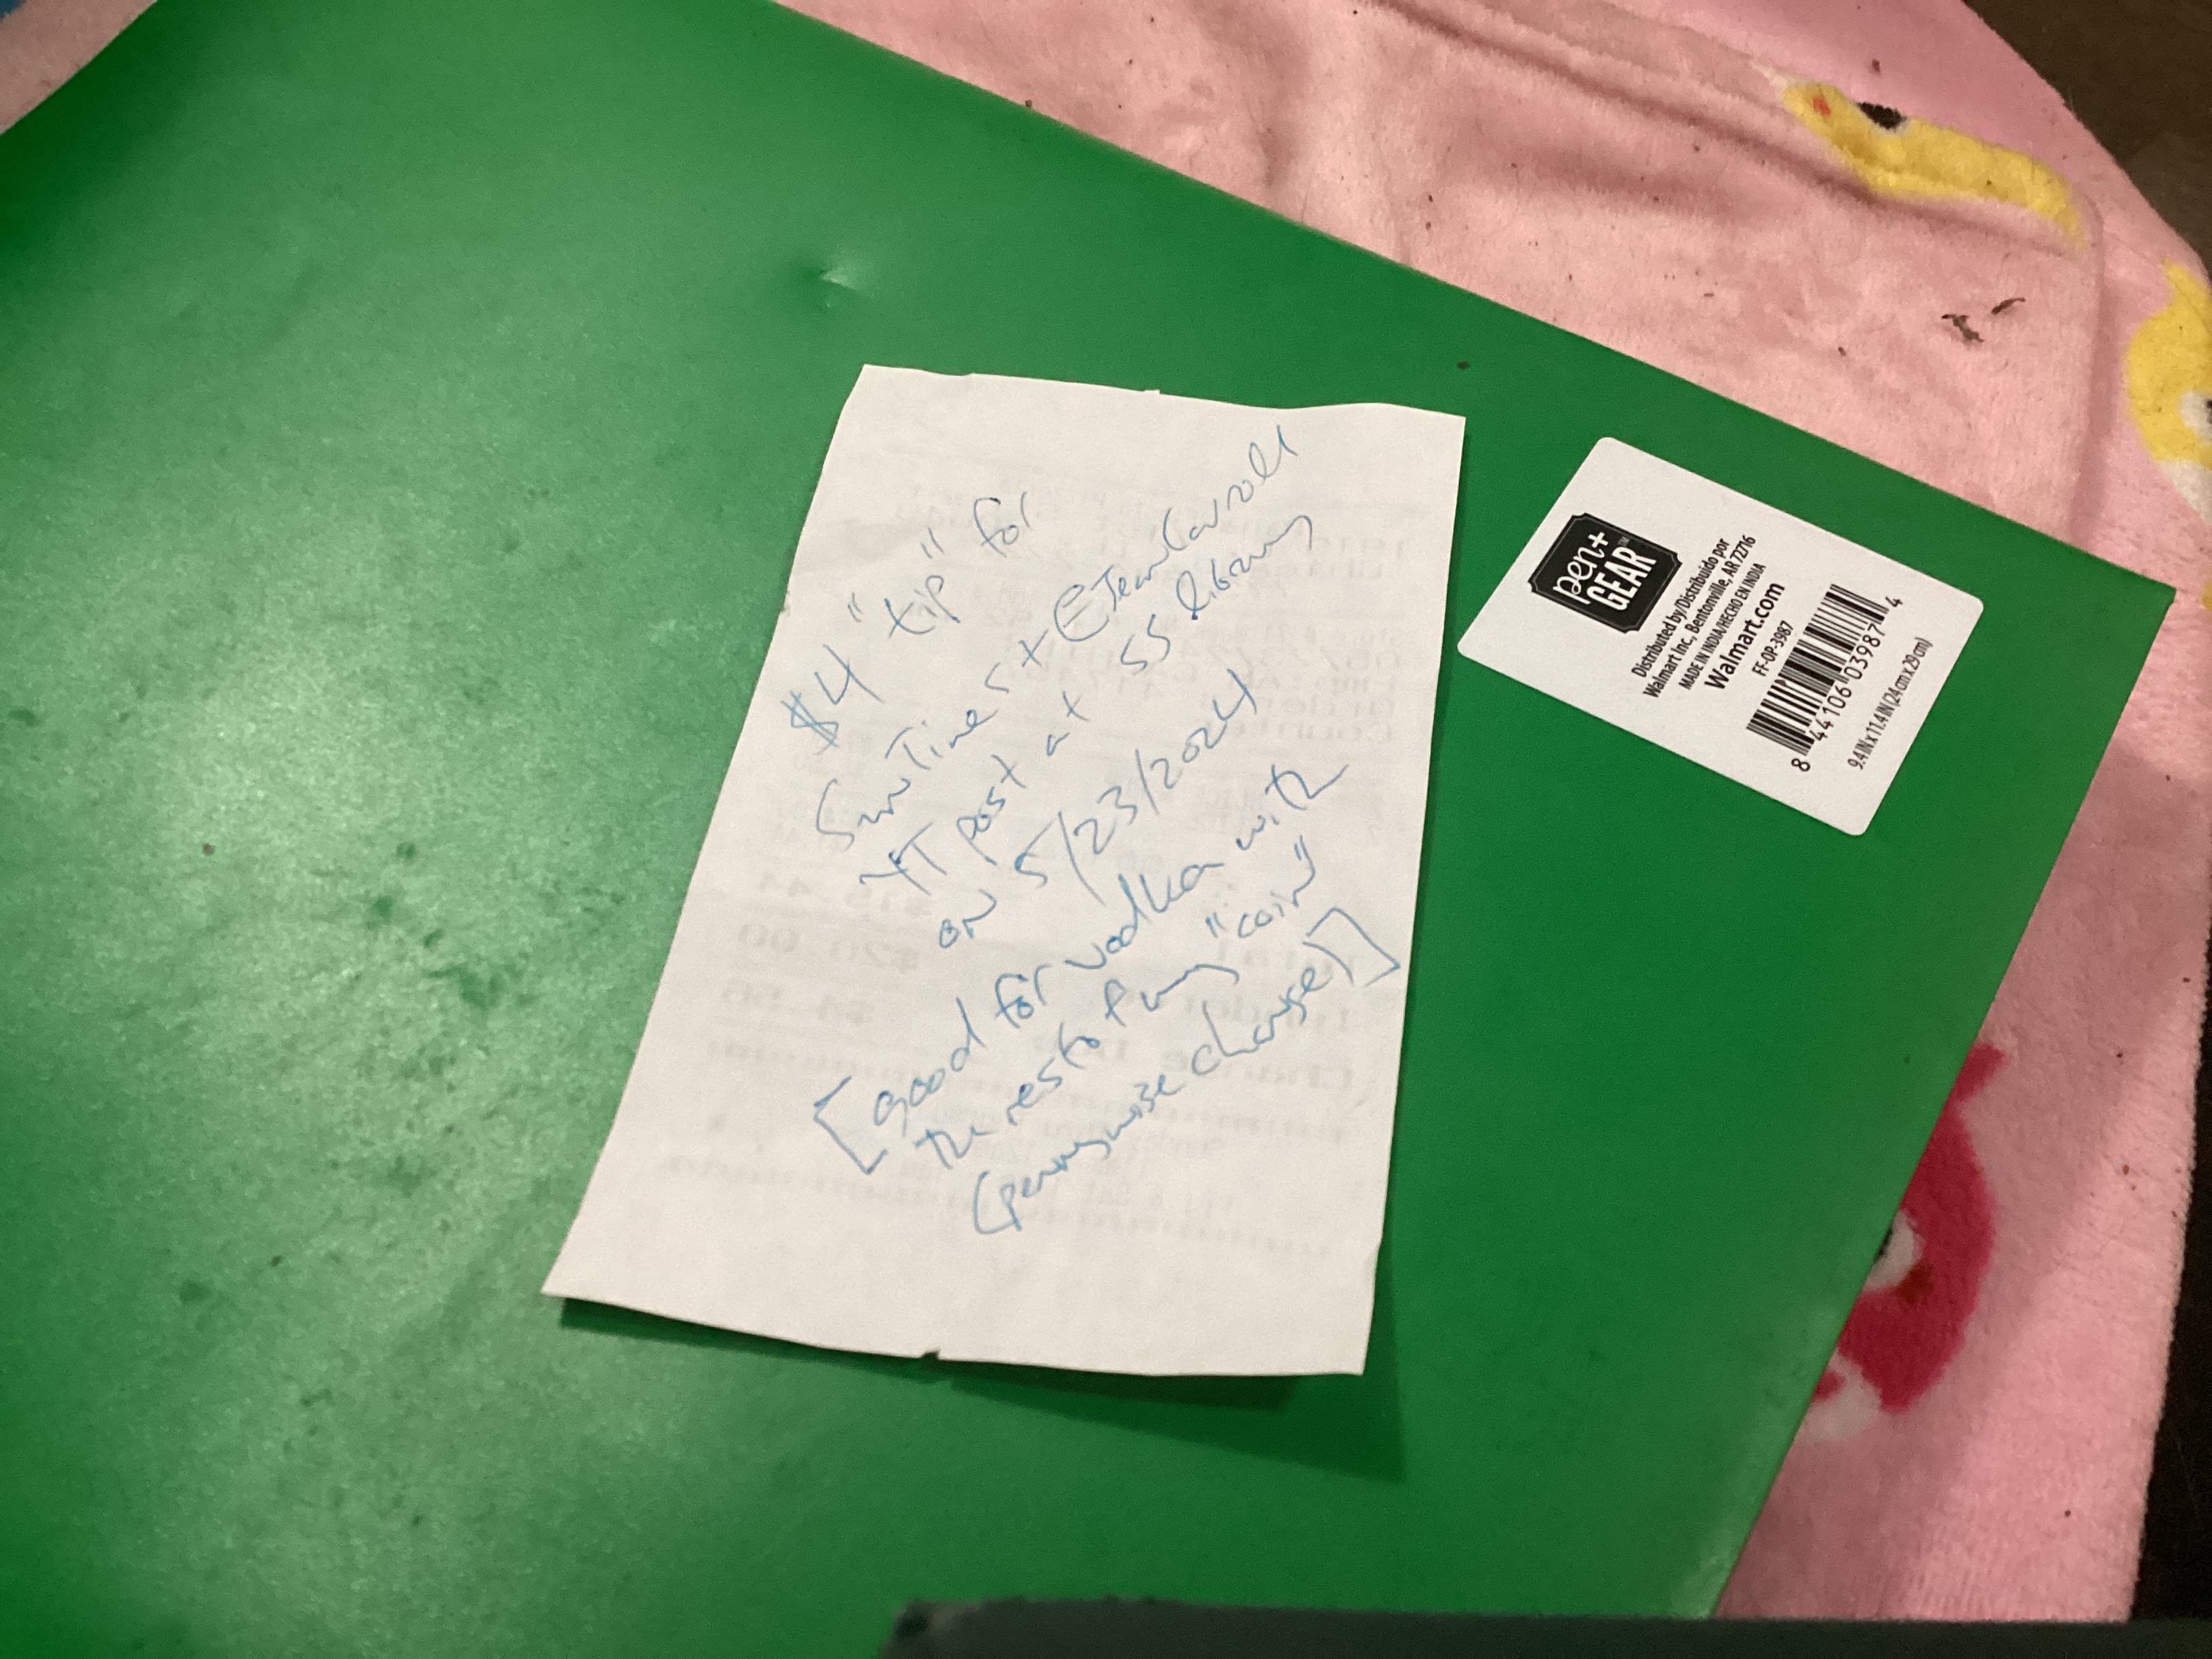 $4 "tip" for
SunTimes + E Jean Carroll
YT post at SS library
on 5/23/2024
[good for vodka with
the rest of my "coin"
(pennywise change)]
pen+
GEAR™
Distributed by/Distribuido por
Walmart Inc., Bentonville, AR 72716
MADE IN INDIA/HECHO EN INDIA
Walmart.com
FF-OP-3987
8 44106 03987 4
9.4IN x 11.4IN (24 cm x 29 cm)